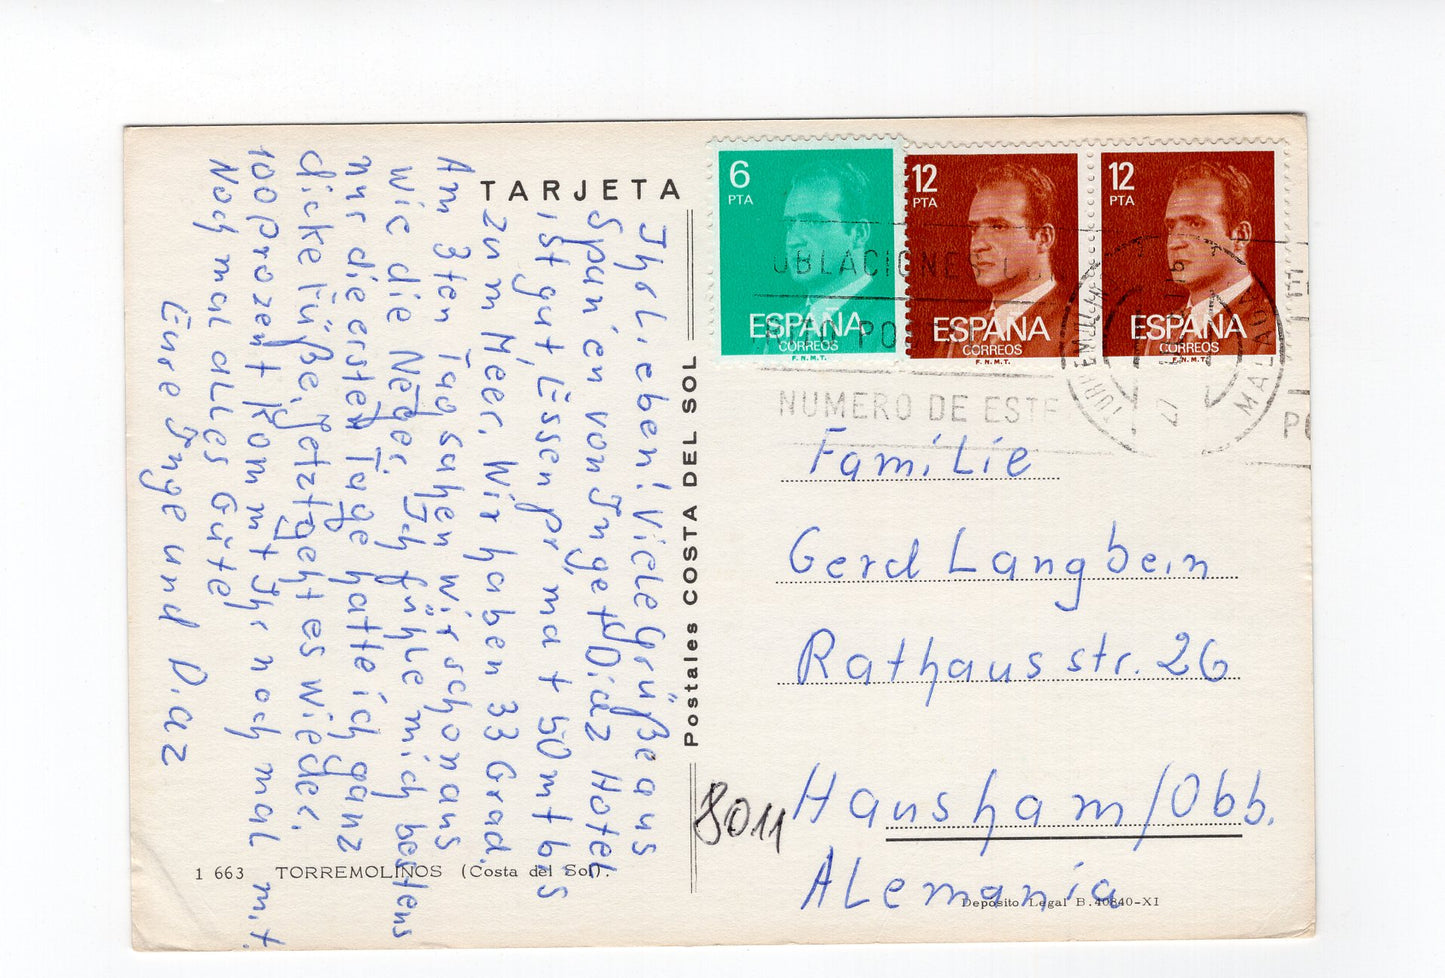 TARJETA
Ihr Lieben! Viele Grüße aus
Spanien von Inge + Diaz Hotel
ist gut, Essen pr ma + 50 mt bis
zum Meer. Wir haben 33 Grad.
Am 3ten Tag sahen wir schon aus
wie die Neger. Ich fühle mich bestens
nur die ersten Tage hatte ich ganz
dicke Füße, Jetzt geht es wieder.
100 Prozent Kommt Ihr noch mal mit.
Noch mal alles Gute!
Eure Inge und Diaz
Postales COSTA DEL SOL
1 663 TORREMOLINOS (Costa del Sol).
6
PTA
ESPAÑA
CORREOS
F. N. M. T.
12
PTA
ESPAÑA
CORREOS
F. N. M. T.
12
PTA
ESPAÑA
CORREOS
F. N. M. T.
NUMERO DE ESTE
MALAGA
Familie
Gerd Langbein
Rathausstr. 26
8011 Hausham/Obb.
Alemania
Depósito Legal B. 40840-XI